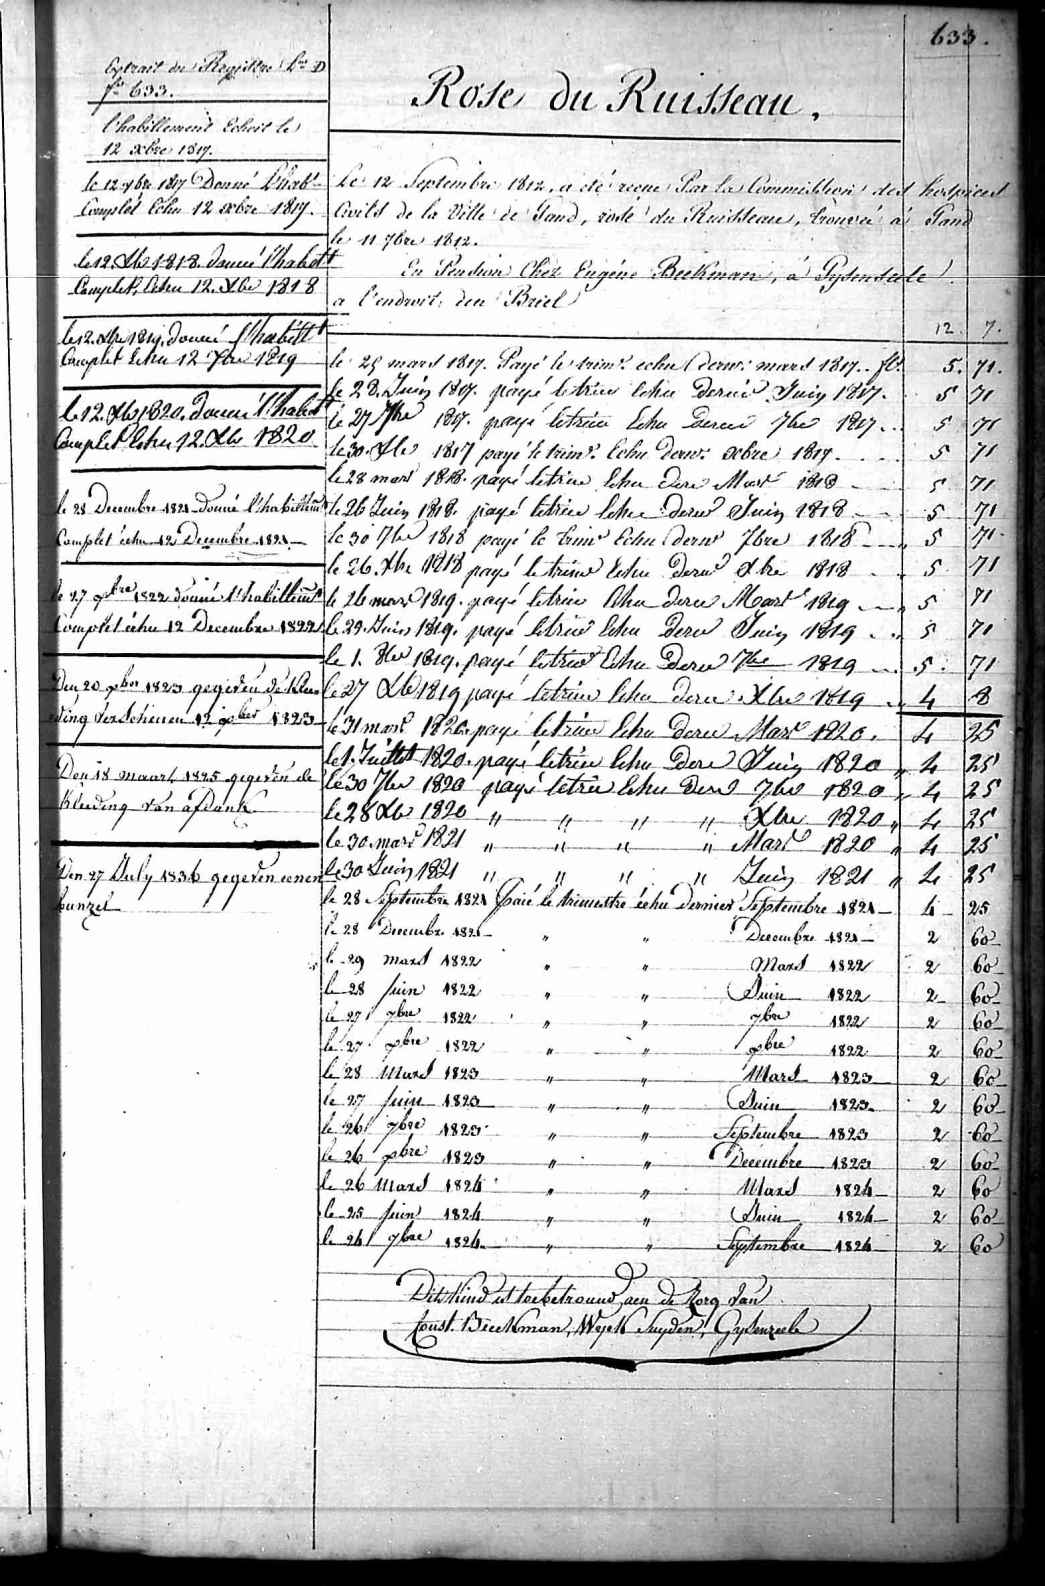 633.
Extrait du Registre Lre D
fo 633.
l'habillement Echoit le
12 xbre 1817.
le 12 xbre 1817 Donné l'habt
Complet Echu 12 xbre 1817.
le 12. Xbe 1818. donné l'habitt
Complet, Echu 12. Xbe 1818
le 12. Xbe 1819. donné l'habittt
Complet Echu 12 Xbre 1819
le 12. Xbe 1820. donné l'habitt
Complet Echu 12. Xbe 1820
le 28 Decembre 1821 donné l'habillemt
Complet échu 12 Decembre 1821
le 27 xbre 1822 donné l'habillemt
Complet échu 12 Decembre 1822
Den 20 xber 1823 gegeven de klee
ding verscheenen 12 xber 1823
Den 18 maart 1825 gegeven de
kleeding van afdank
Den 27 July 1836 gegeven eenen
bunzel
Rose du Ruisseau.
Le 12 Septembre 1812. a été reçue Par la Commission des hospices
Civils de la Ville de Gand, rose du Ruisseau, trouvée à Gand
le 11 7bre 1812.
En Pension Chez Eugéne Beekman, à Gysenseele
a l'endroit den Briel
12. 7.
le 25 mars 1817. Payé le trimr. echu dernr. mars 1817. fl. 5. 71.
le 28. Juin 1817. payé letrim Echu dernié Juin 1817. 5 71
le 27 7bre 1817. payé letrim Echu dernié 7be 1817. 5 71
le 30. Xbe 1817 payé le trimr. Echu dernr. xbre 1817. 5 71
le 28 mars 1818. payé letrim Echu dere Mars 1818 5 71
le 26 Juin 1818. payé letrim Echu derner Juin 1818 5 71
le 30 7be 1818 payé le trimr Echu dernr 7bre 1818 5 71
le 26. Xbe 1818 payé letrim Echu dernr Xbe 1818 5 71
le 26 mars 1819. payé letrim Echu derer Mars 1819 5 71
le 29. Juin 1819. payé letrim Echu derer Juin 1819 5 71
le 1. 8be 1819. payé letrim Echu derer 7be 1819 5. 71
le 27 Xbe 1819 payé letrim Echu derer Xbe 1819 4 8
le 31 mars 1820. payé letrim Echu derer Mars 1820. 4 25
le 1. Juillet 1820. payé letrim Echu dere Juin 1820 „ 4 25
le 30 7be 1820 payé letrim Echu dere 7be 1820 „ 4 25
le 28 Xbe 1820 „ „ „ „ Xbe 1820 „ 4 25
le 30. mars 1821 „ „ „ „ Mars 1820 „ 4 25
le 30 Juin 1821 „ „ „ „ Juin 1821 „ 4 25
le 28 Septembre 1821 Paié le trimestre échu dernier Septembre 1821 4 25
le 28 Decembre 1821 „ „ Decembre 1821 2 60
le 29 mars 1822 „ „ Mars 1822 2 60
le 28 juin 1822 „ „ Juin 1822 2 60
le 27 7bre 1822 „ „ 7bre 1822 2 60
le 27 xbre 1822 „ „ xbre 1822 2 60
le 28 Mars 1823 „ „ Mars 1823 2 60
le 27 juin 1823 „ „ Juin 1823 2 60
le 26 7bre 1823 „ „ Septembre 1823 2 60
le 26 xbre 1823 „ „ Decembre 1823 2 60
le 26 Mars 1824 „ „ Mars 1824 2 60
le 25 juin 1824 „ „ Juin 1824 2 60
le 24 7bre 1824 „ „ Septembre 1824 2 60
Dit kind is toebetrouwd aen de Zorg van
Const. Beekman, Wyck Suyden, Gysenzeele